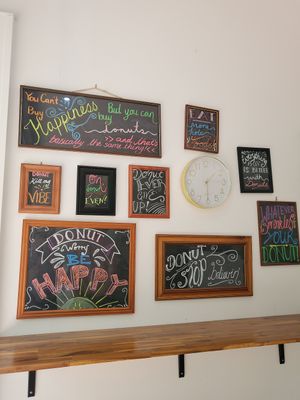 You Can't
Buy
Happiness
But you can
buy
donuts
and that's
basically the same thing!
EAT
more
hole
foods
Donut
Kill my
VIBE
Donut
even?
Donut
EVER
GIVE
UP
Everything
is BETTER
with
Donuts
WHATEVER
Sprinkles
YOUR
DONUT
DONUT
Worry
BE
HAPPY
DONUT
STOP
believing